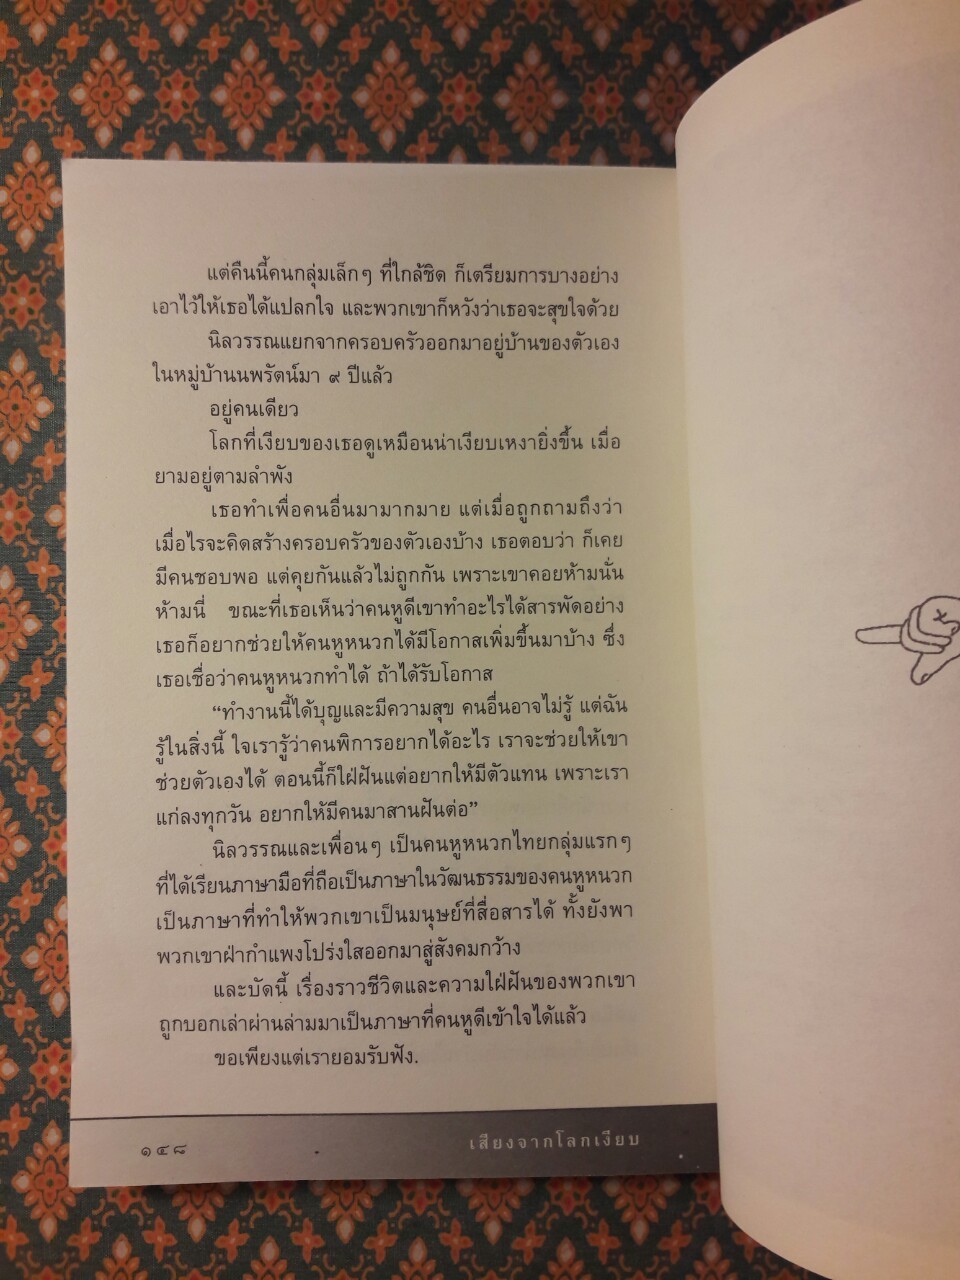 แต่คืนนี้คนกลุ่มเล็กๆ ที่ใกล้ชิด ก็เตรียมการบางอย่าง
เอาไว้ให้เธอได้แปลกใจ และพวกเขาก็หวังว่าเธอจะสุขใจด้วย
นิลวรรณแยกจากครอบครัวออกมาอยู่บ้านของตัวเอง
ในหมู่บ้านนพรัตน์มา ๙ ปีแล้ว
อยู่คนเดียว
โลกที่เงียบของเธอดูเหมือนน่าเงียบเหงายิ่งขึ้น เมื่อ
ยามอยู่ตามลำพัง
เธอทำเพื่อคนอื่นมามากมาย แต่เมื่อถูกถามถึงว่า
เมื่อไรจะคิดสร้างครอบครัวของตัวเองบ้าง เธอตอบว่า ก็เคย
มีคนชอบพอ แต่คุยกันแล้วไม่ถูกกัน เพราะเขาคอยห้ามนั่น
ห้ามนี่ ขณะที่เธอเห็นว่าคนหูดีเขาทำอะไรได้สารพัดอย่าง
เธอก็อยากช่วยให้คนหูหนวกได้มีโอกาสเพิ่มขึ้นมาบ้าง ซึ่ง
เธอเชื่อว่าคนหูหนวกทำได้ ถ้าได้รับโอกาส
“ทำงานนี้ได้บุญและมีความสุข คนอื่นอาจไม่รู้ แต่ฉัน
รู้ในสิ่งนี้ ใจเรารู้ว่าคนพิการอยากได้อะไร เราจะช่วยให้เขา
ช่วยตัวเองได้ ตอนนี้ก็ใฝ่ฝันแต่อยากให้มีตัวแทน เพราะเรา
แก่ลงทุกวัน อยากให้มีคนมาสานฝันต่อ”
นิลวรรณและเพื่อนๆ เป็นคนหูหนวกไทยกลุ่มแรกๆ
ที่ได้เรียนภาษามือที่ถือเป็นภาษาในวัฒนธรรมของคนหูหนวก
เป็นภาษาที่ทำให้พวกเขาเป็นมนุษย์ที่สื่อสารได้ ทั้งยังพา
พวกเขาฝ่ากำแพงโปร่งใสออกมาสู่สังคมกว้าง
และบัดนี้ เรื่องราวชีวิตและความใฝ่ฝันของพวกเขา
ถูกบอกเล่าผ่านล่ามมาเป็นภาษาที่คนหูดีเข้าใจได้แล้ว
ขอเพียงแต่เรายอมรับฟัง.
๑๔๘
เสียงจากโลกเงียบ